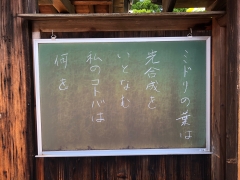 ミドリの葉は
光合成を
いとなむ
私のコトバは
何を